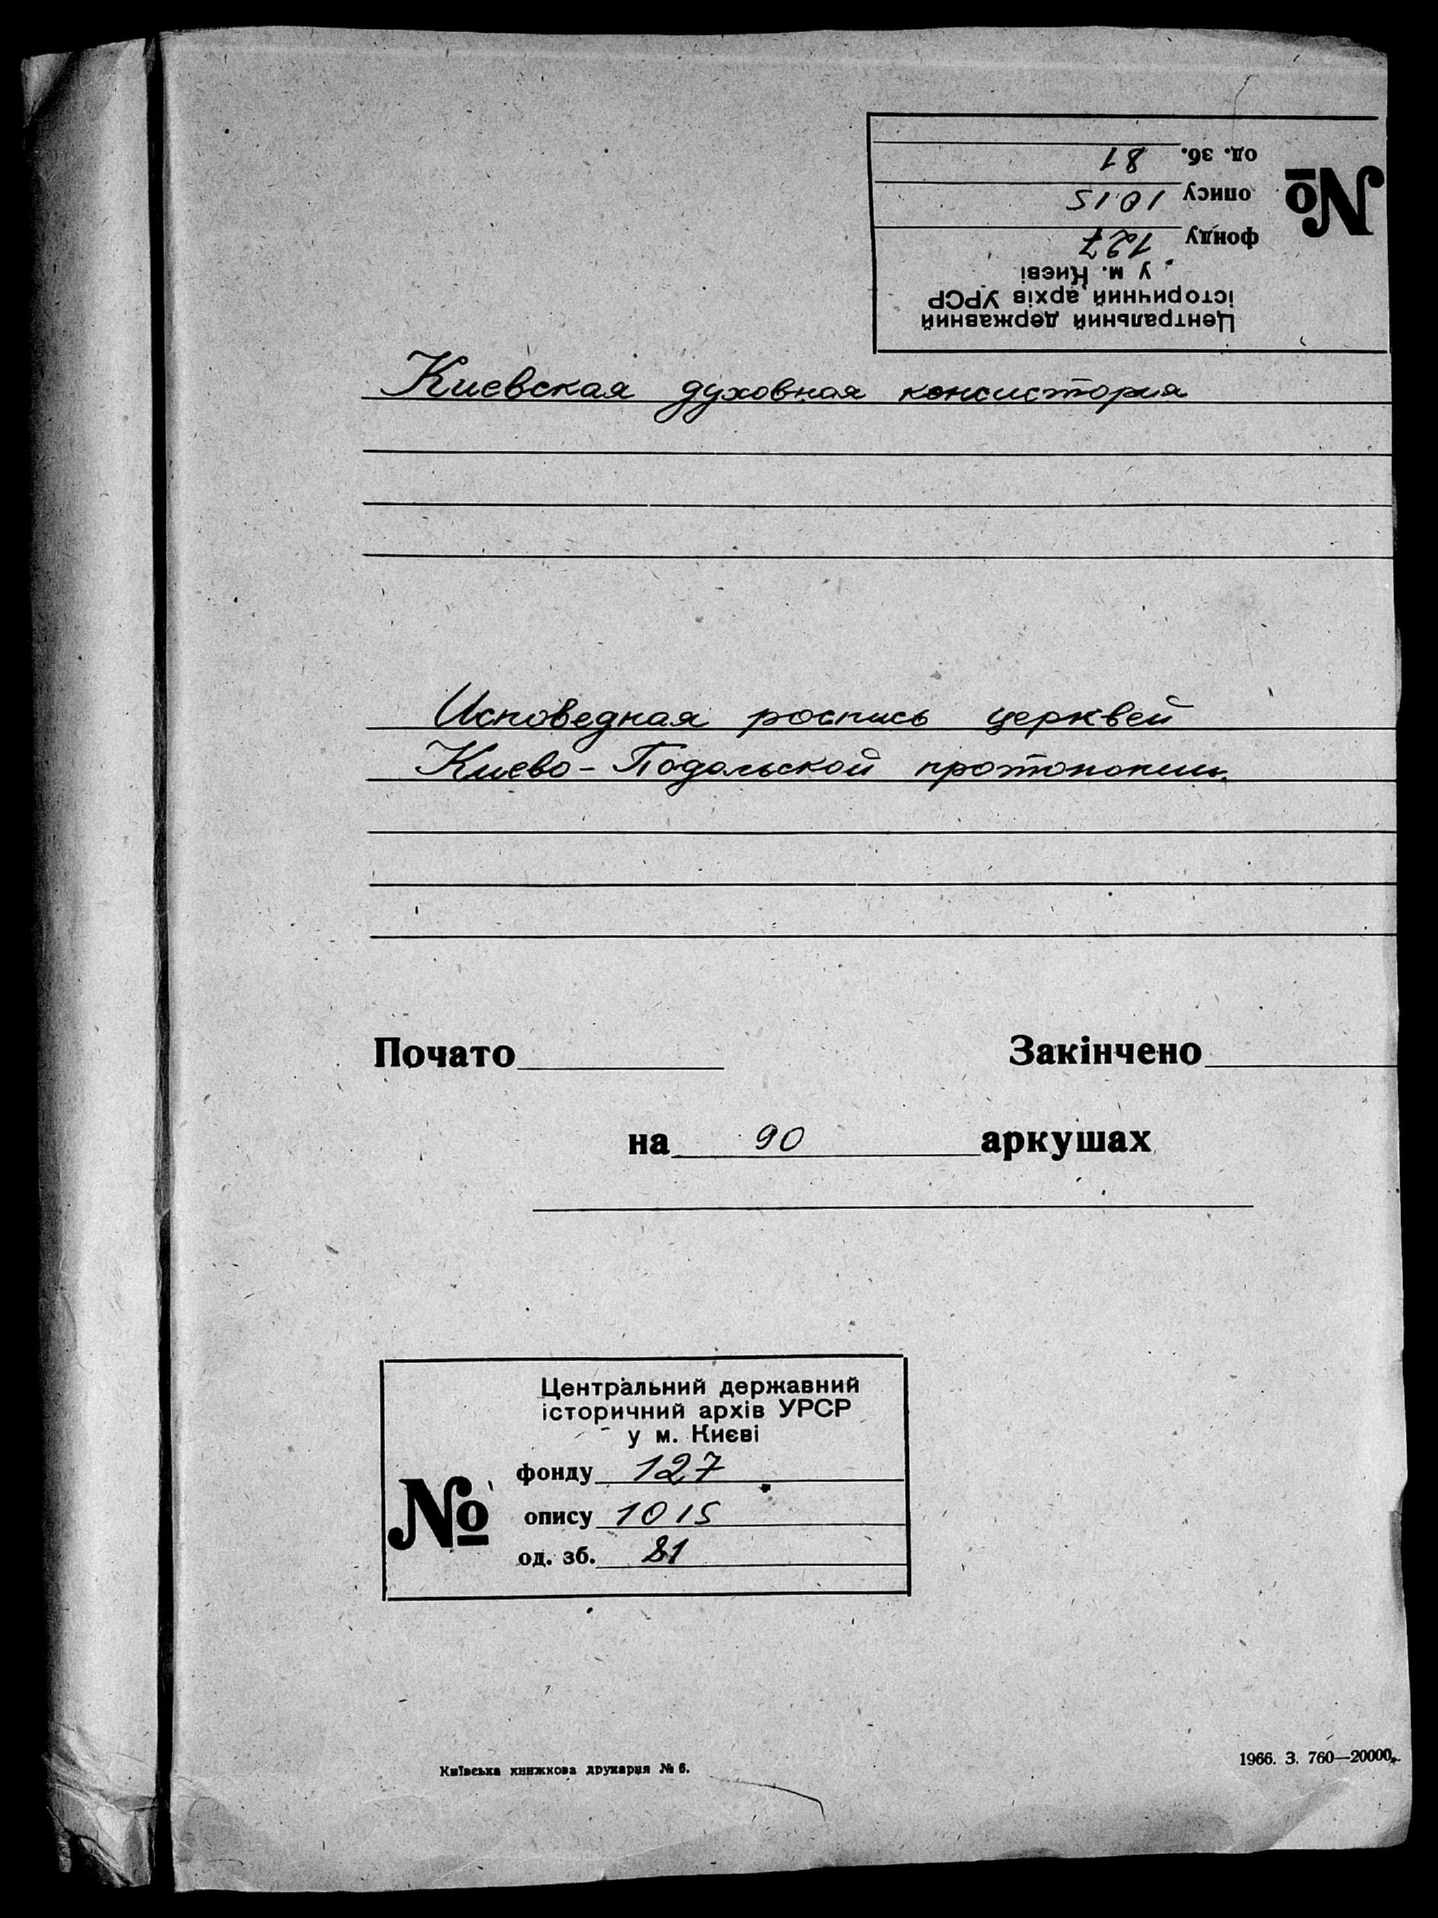 Центральний державний
історичний архів УРСР
у м. Києві
фонду 127
опису 1015
од. зб. 81
№
Киевская духовная консистория
Исповедная роспись церквей
Киево-Подольской протопопии.
Почато
Закінчено
на 90 аркушах
Центральний державний
історичний архів УРСР
у м. Києві
№
фонду 127
опису 1015
од. зб. 81
Київська книжкова друкарня № 6.
1966. З. 760—20000.